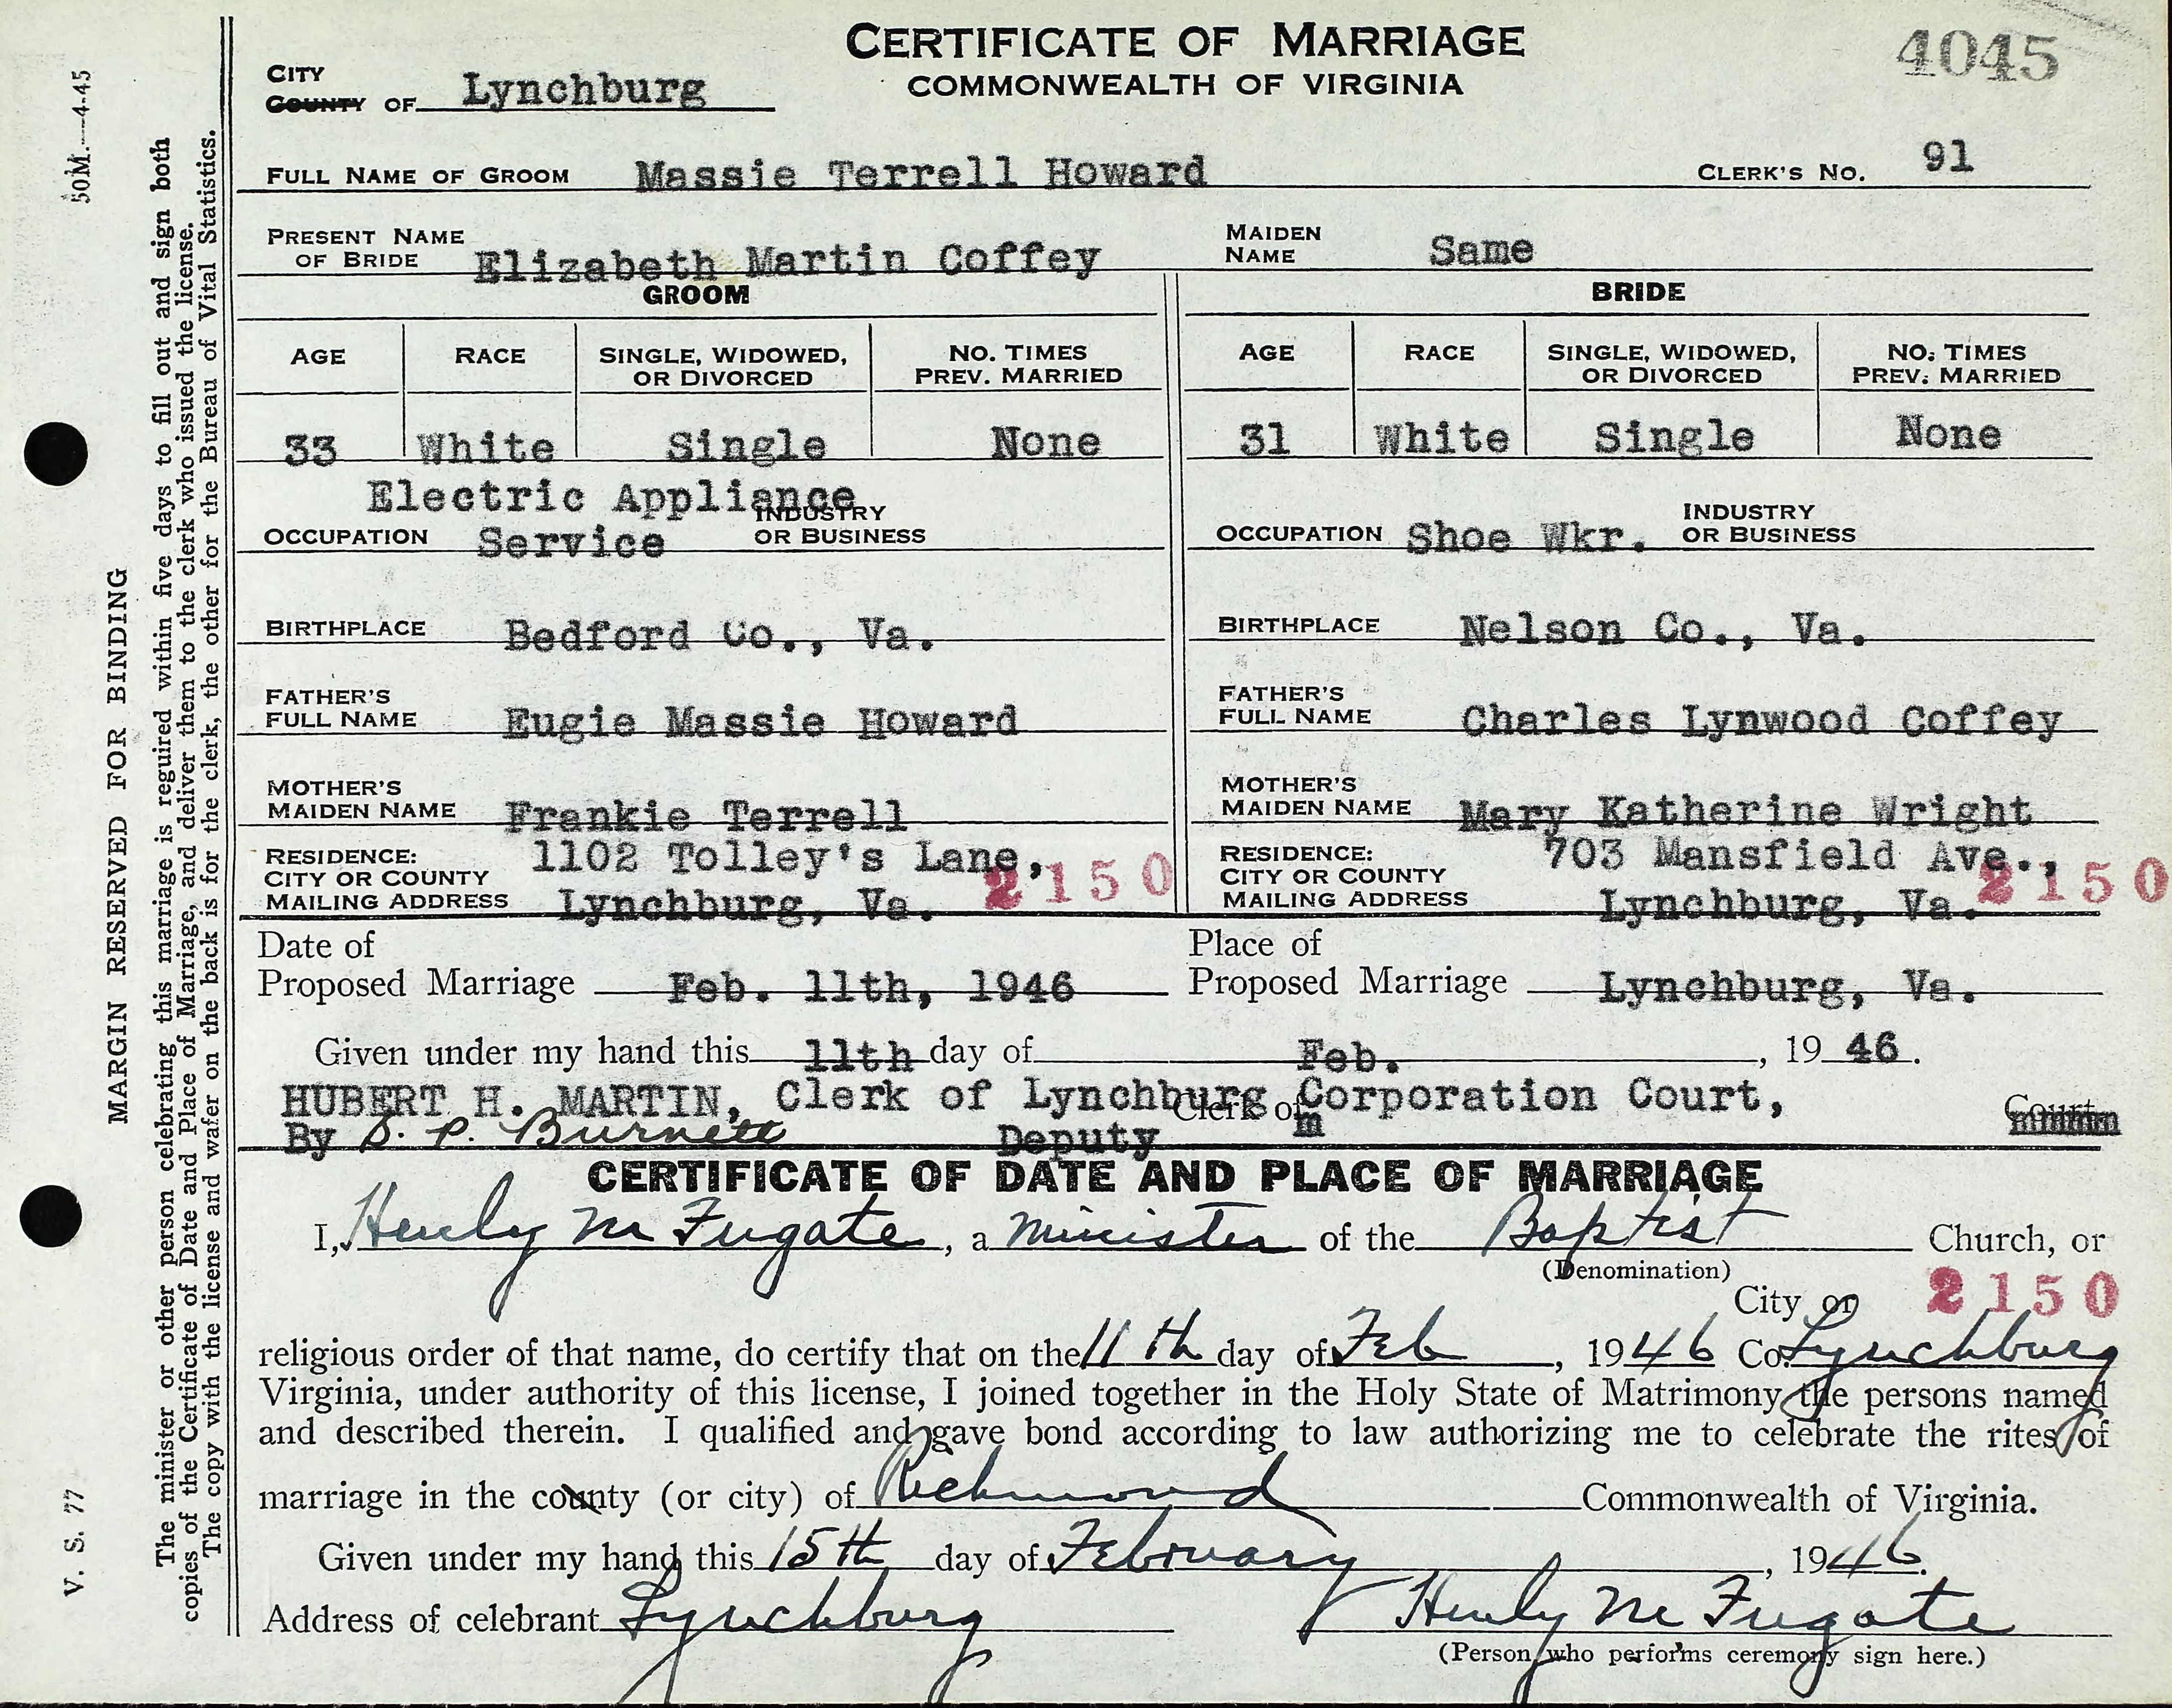 CERTIFICATE OF MARRIAGE
COMMONWEALTH OF VIRGINIA
4045
CITY
COUNTY OF Lynchburg
FULL NAME OF GROOM Massie Terrell Howard CLERK'S NO. 91
PRESENT NAME OF BRIDE Elizabeth Martin Coffey MAIDEN NAME Same
GROOM BRIDE
AGE RACE SINGLE, WIDOWED, OR DIVORCED NO. TIMES PREV. MARRIED AGE RACE SINGLE, WIDOWED, OR DIVORCED NO. TIMES PREV. MARRIED
33 White Single None 31 White Single None
Electric Appliance
OCCUPATION Service INDUSTRY OR BUSINESS OCCUPATION Shoe Wkr. INDUSTRY OR BUSINESS
BIRTHPLACE Bedford Co., Va. BIRTHPLACE Nelson Co., Va.
FATHER'S FULL NAME Eugie Massie Howard FATHER'S FULL NAME Charles Lynwood Coffey
MOTHER'S MAIDEN NAME Frankie Terrell MOTHER'S MAIDEN NAME Mary Katherine Wright
RESIDENCE: 1102 Tolley's Lane, RESIDENCE: 703 Mansfield Ave.,
CITY OR COUNTY 2150 CITY OR COUNTY 2150
MAILING ADDRESS Lynchburg, Va. MAILING ADDRESS Lynchburg, Va.
Date of Place of
Proposed Marriage Feb. 11th, 1946 Proposed Marriage Lynchburg, Va.
Given under my hand this 11th day of Feb., 1946.
HUBERT H. MARTIN, Clerk of Lynchburg Corporation Court,
Clerk of Court
By Burnett Deputy
CERTIFICATE OF DATE AND PLACE OF MARRIAGE
I, Henly M Fugate, a minister of the Baptist Church, or
(Denomination)
City or 2150
religious order of that name, do certify that on the 11th day of Feb, 1946 Co. Lynchburg
Virginia, under authority of this license, I joined together in the Holy State of Matrimony the persons named
and described therein. I qualified and gave bond according to law authorizing me to celebrate the rites of
marriage in the county (or city) of Richmond Commonwealth of Virginia.
Given under my hand this 15th day of February, 1946.
Address of celebrant Lynchburg Henly M Fugate
(Person who performs ceremony sign here.)
50M.—4-45
MARGIN RESERVED FOR BINDING
V. S. 77
The minister or other person celebrating this marriage is required within five days to fill out and sign both
copies of the Certificate of Date and Place of Marriage, and deliver them to the clerk who issued the license.
The copy with the license and wafer on the back is for the clerk, the other for the Bureau of Vital Statistics.